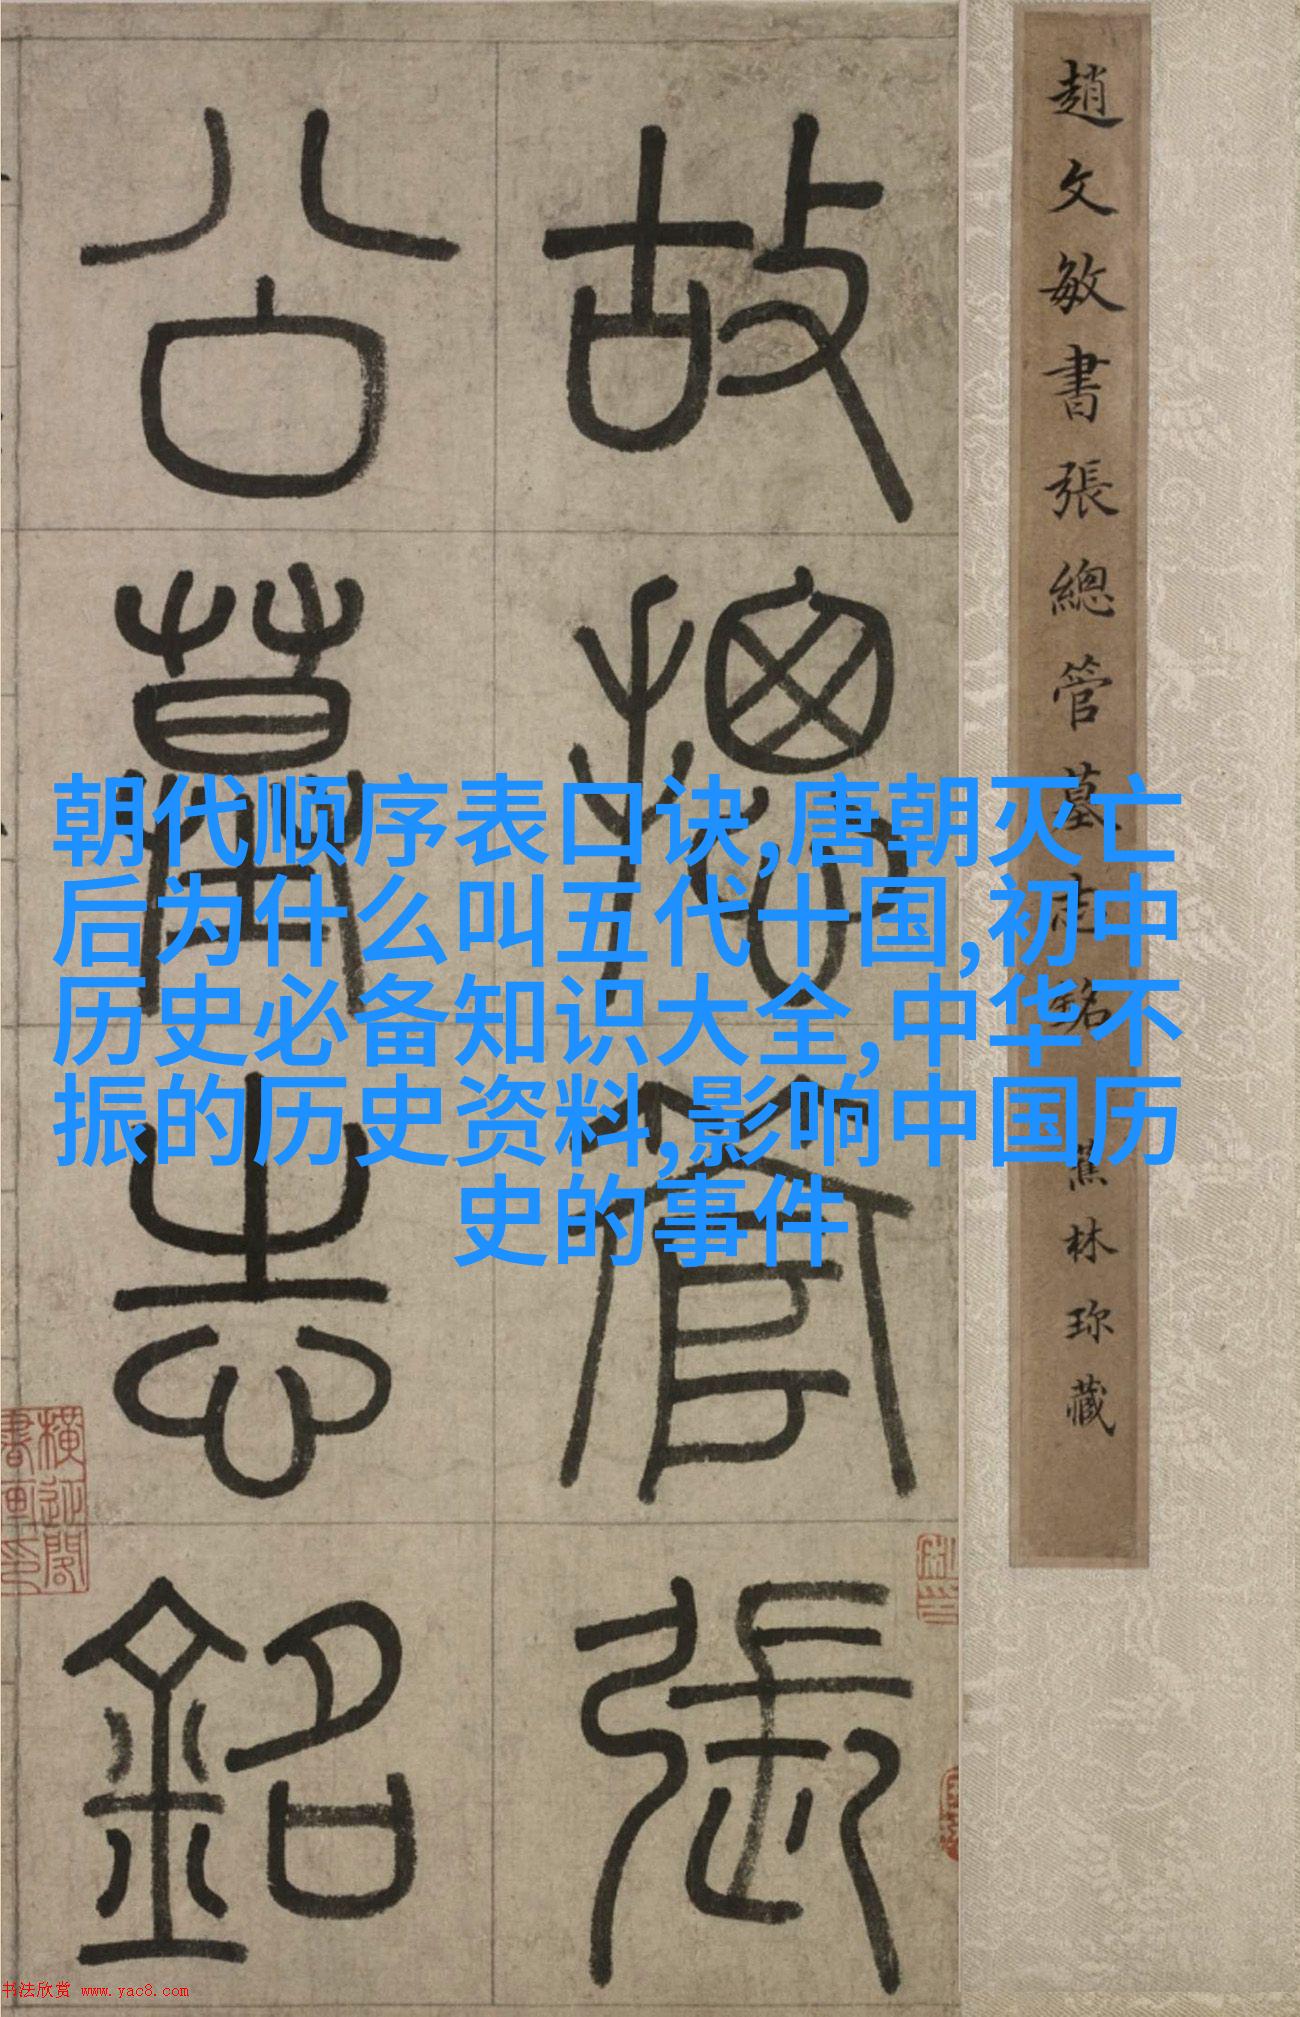 趙文敏書張總管墓志銘 蕉林珍藏
故揔管張
公墓志銘
朝代顺序表口诀,唐朝灭亡
后为什么叫五代十国,初中
历史必备知识大全,中华不
振的历史资料,影响中国历
史的事件
书法欣赏 www.yac8.com